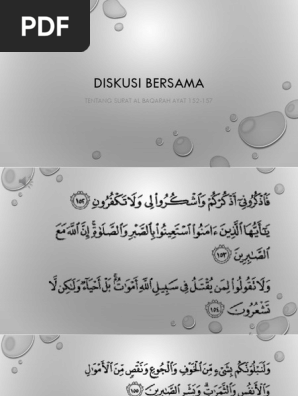 PDF
DISKUSI BERSAMA
TENTANG SURAT AL BAQARAH AYAT 152-157
فَاذْكُرُونِي أَذْكُرْكُمْ وَاشْكُرُوا لِي وَلَا تَكْفُرُونِ ١٥٢
يَا أَيُّهَا الَّذِينَ ءَامَنُوا اسْتَعِينُوا بِالصَّبْرِ وَالصَّلَوٰةِ إِنَّ اللَّهَ مَعَ
الصَّابِرِينَ ١٥٣
وَلَا تَقُولُوا لِمَن يُقْتَلُ فِي سَبِيلِ اللَّهِ أَمْوَاتٌ بَلْ أَحْيَاءٌ وَلَٰكِن لَّا
تَشْعُرُونَ ١٥٤
وَلَنَبْلُوَنَّكُم بِشَيْءٍ مِّنَ الْخَوْفِ وَالْجُوعِ وَنَقْصٍ مِّنَ الْأَمْوَالِ
وَالْأَنفُسِ وَالثَّمَرَاتِ وَبَشِّرِ الصَّابِرِينَ ١٥٥